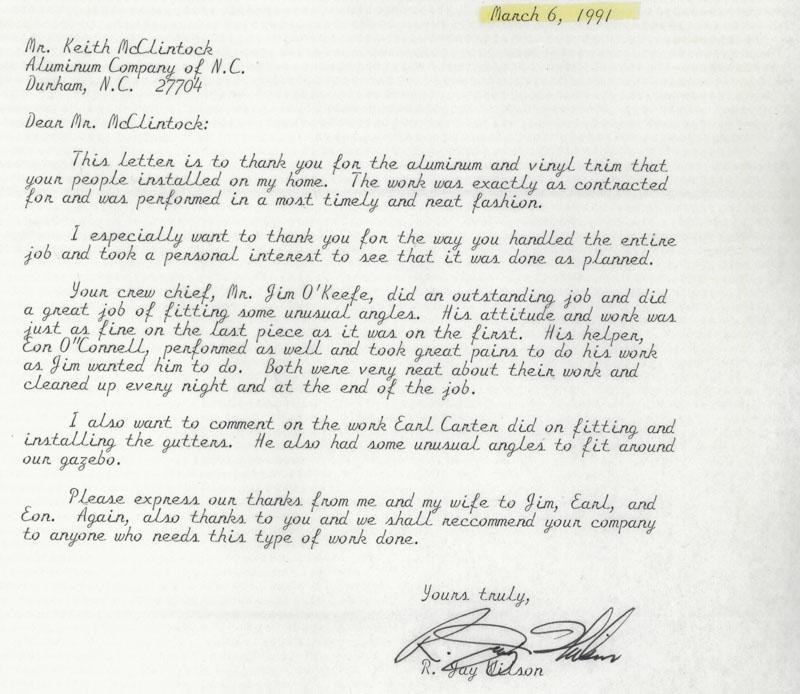 March 6, 1991
Mr. Keith McClintock
Aluminum Company of N.C.
Durham, N.C. 27704
Dear Mr. McClintock:
This letter is to thank you for the aluminum and vinyl trim that
your people installed on my home. The work was exactly as contracted
for and was performed in a most timely and neat fashion.
I especially want to thank you for the way you handled the entire
job and took a personal interest to see that it was done as planned.
Your crew chief, Mr. Jim O'Keefe, did an outstanding job and did
a great job of fitting some unusual angles. His attitude and work was
just as fine on the last piece as it was on the first. His helper,
Eon O"Connell, performed as well and took great pains to do his work
as Jim wanted him to do. Both were very neat about their work and
cleaned up every night and at the end of the job.
I also want to comment on the work Earl Carter did on fitting and
installing the gutters. He also had some unusual angles to fit around
our gazebo.
Please express our thanks from me and my wife to Jim, Earl, and
Eon. Again, also thanks to you and we shall reccommend your company
to anyone who needs this type of work done.
Yours truly,
R. Jay Wilson
R. Jay Wilson